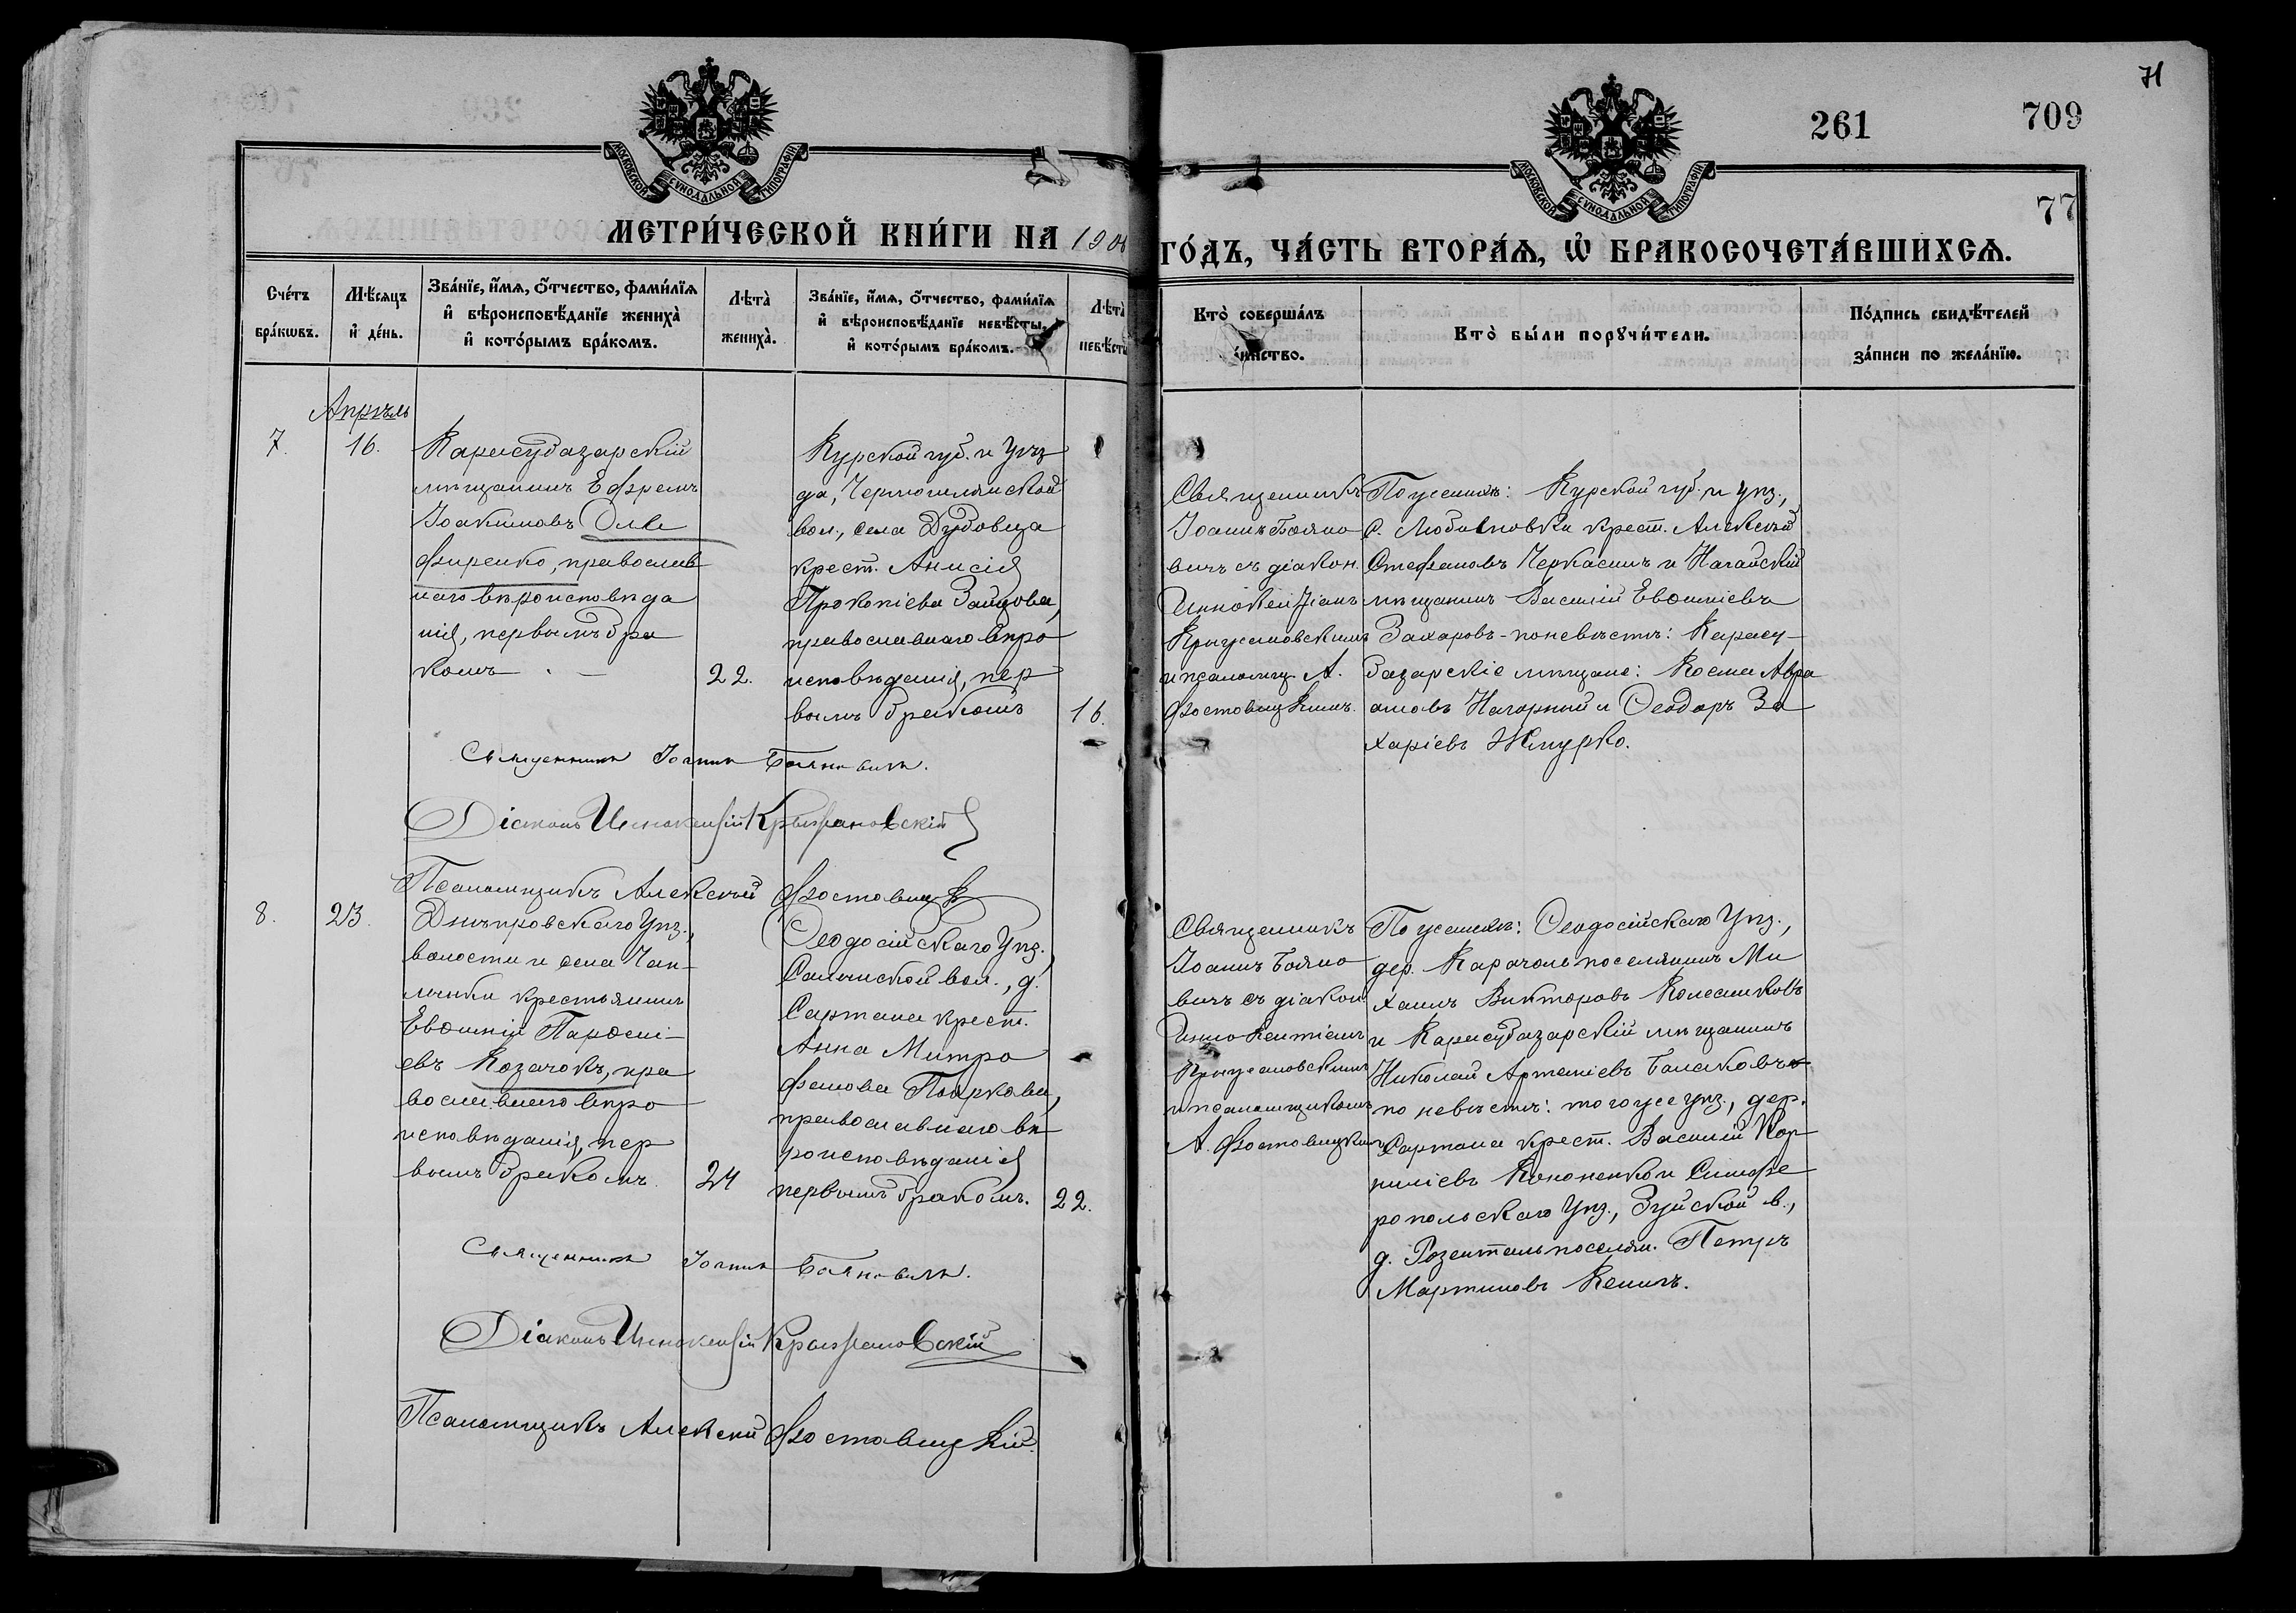 71
261
709
77
МОСКОВСКОЙ СѴНОДАЛЬНОЙ ТИПОГРАФІИ
МОСКОВСКОЙ СѴНОДАЛЬНОЙ ТИПОГРАФІИ
МЕТРИ́ЧЕСКОЙ КНИ́ГИ НА 190
ГО́ДЪ, ЧА́СТЬ ВТОРА́Ѧ, Ѡ҆ БРАКОСОЧЕТА́ВШИХСѦ.
Сче́тъ
бра́кѡвъ.
Мѣ́сяцъ
и҆ де́нь.
Зва́нїе, и҆́мѧ, ѻ҆́тчество, фами́лїѧ
и҆ вѣроисповѣ́данїе жениха̀
и҆ кото́рымъ бра́комъ.
Лѣта̀
жениха̀.
Зва́нїе, и҆́мѧ, ѻ҆́тчество, фами́лїѧ
и҆ вѣроисповѣ́данїе невѣ́сты,
и҆ кото́рымъ бра́комъ.
Лѣта̀
невѣ́сты
Кто̀ соверша́лъ
таинство.
Кто̀ бы́ли порꙋчи́тели.
По́дпись свидѣ́телей
за́писи по жела́нїю.
Апрѣль
7.
16.
Карасубазарскій
мѣщанинъ Ефремъ
Іоакимовъ Оли
фиренко, православ
наго вѣроисповѣда
нія, первымъ бра
комъ
22.
Курской губ. и уѣз
да,
вол., села Дубовца
крест. Анисія
Прокопіева Зайцова,
православнаго вѣро
исповѣданія, пер
вымъ бракомъ
16.
Священникъ
Іоаннъ Бояно
вичъ съ діакон.
Иннокентіемъ
Крыжановскимъ
и псаломщ. А.
Фостовицкимъ.
По женихѣ: Курской губ. и уѣз.,
с. крест. Алексѣй
Стефановъ Черкасинъ и Ногайскій
мѣщанинъ Василій Евѳиміевъ
Захаровъ - по невѣстѣ: Карасу-
базарскіе мѣщане: Косма Авра
амовъ Нагорный и Ѳеодоръ За
харіевъ Жмурко.
Священникъ Іоаннъ Бояновичъ.
Діаконъ Иннокентій Крыжановскій
Псаломщикъ Алексѣй Фостовицк
8.
23.
Днѣпровскаго уѣз.,
волости и села Чап-
линки крестьянинъ
Евѳимій Парѳені-
евъ Козачокъ, пра
вославнаго вѣро
исповѣданія, пер
вымъ бракомъ
24
Ѳеодосійскаго уѣз.
Салынской вол., д.
Сартана крест.
Анна Митро
фанова Пояркова,
православнаго вѣ
роисповѣданія
первымъ бракомъ.
22.
Священникъ
Іоаннъ Бояно
вичъ съ діакон
Иннокентіемъ
Крыжановскимъ
и псаломщикомъ
А. Фостовицкимъ
По женихѣ: Ѳеодосійскаго уѣз.,
дер. Карачоль поселянинъ Ми
хаилъ Викторовъ Колесниковъ
и Карасубазарскій мѣщанинъ
Николай Артеміевъ Балаковъ
по невѣстѣ: того же уѣз., дер.
Сартана крест. Василій Кор
ниліевъ Кононенко и Симфе
ропольскаго уѣз., Зуйской в.,
д. Розенталь поселян. Петръ
Мартиновъ Келинъ.
Священникъ Іоаннъ Бояновичъ.
Діаконъ Иннокентій Крыжановскій
Псаломщикъ Алексѣй Фостовицкій